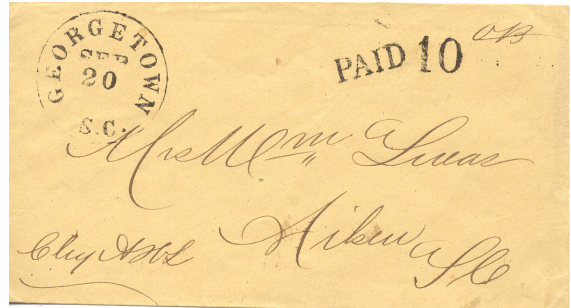 GEORGETOWN
SEP
20
S.C.
PAID 10
Mrs Wm Lucas
Aiken
SC
Chg